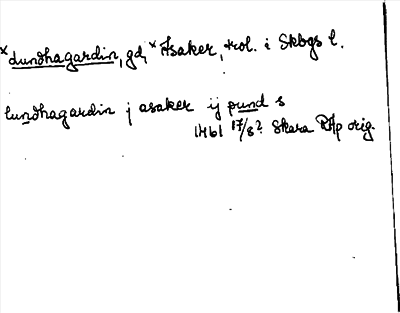 ×dundhagardin, gd, ×Asaker, trol. i Skbgs l.
lundhagardin j asaker ij pund s
1461 17/8? Skara RAp orig.